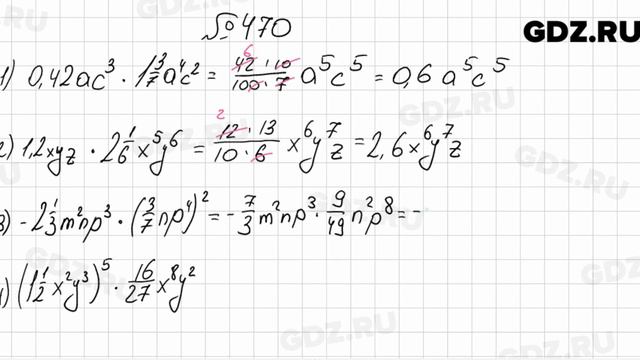 №470
GDZ.RU
1) 0,42ac³ · 1 3/7 a⁴c² = 42·10/100·7 a⁵c⁵ = 0,6 a⁵c⁵
2) 1,2xyz · 2 1/6 x⁵y⁶ = 12·13/10·6 x⁶y⁷z = 2,6x⁶y⁷z
3) -2 1/3 m²np³ · (3/7 np⁴)² = -7/3 m²np³ · 9/49 n²p⁸ = -
4) (1 1/2 x²y³)⁵ · 16/27 x⁸y²